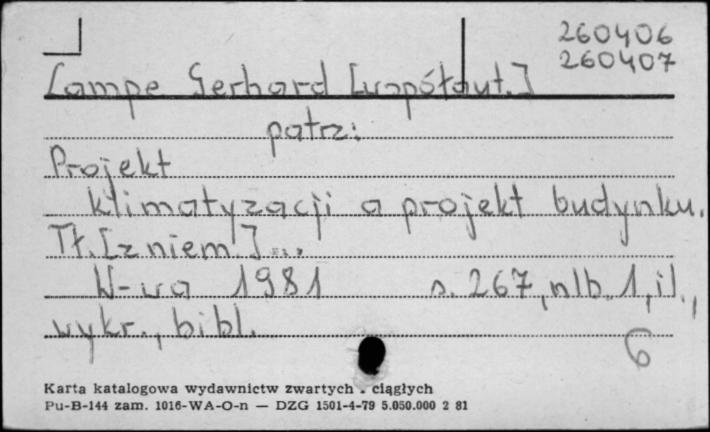 260406
260407
Lampe Gerhard [współaut.]
patrz:
Projekt
klimatyzacji a projekt budynku.
Tł. [z niem.] ...
W-wa 1981 s. 267, nlb. 1, il.,
wykr., bibl.
6
Karta katalogowa wydawnictw zwartych . ciągłych
Pu-B-144 zam. 1016-WA-O-n — DZG 1501-4-79 5.050.000 2 81